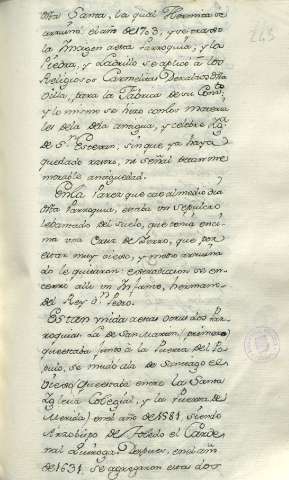 dha Santa, la qual Hermita se
arruinó el año de 1703, y se traxo
la Imagen a esta Parroquia, y la
Piedra, y Ladrillo se aplicó à los
Religiosos Carmelitas Descalzos dha
Villa, para la Fabrica de su Conv.to,
y lo mismo se hizo con los materia
les de la dha antigua, y celebre
de S.n Estevan, sin que ya haya
quedado rastro, ni señal de tan me
morable antiguedad.
En la Pared que cae al medio dia
dha Parroquia, estaba un sepulcro
lebantado del suelo, que tenia enci
ma una Cruz de Yerro, que por
estar muy viejo, y medio arruina
do le quitaron: es tradicion se en
cerró alli un Infante, herman.o
del Rey D.n Pedro.
Estan unidas a estas otras dos Par
roquias. La de San Martin (primero)
que estaba junto à la Puerta del
se mudó à la de Santiago el
Viejo (que estaba entre la Santa
Iglesia Colegial, y la Puerta de
Merida) en el año de 1581 siendo
Arzobispo de Toledo el Carde
nal Quiroga. Despues, en el año
de 1631 se agregaron estas dos
263